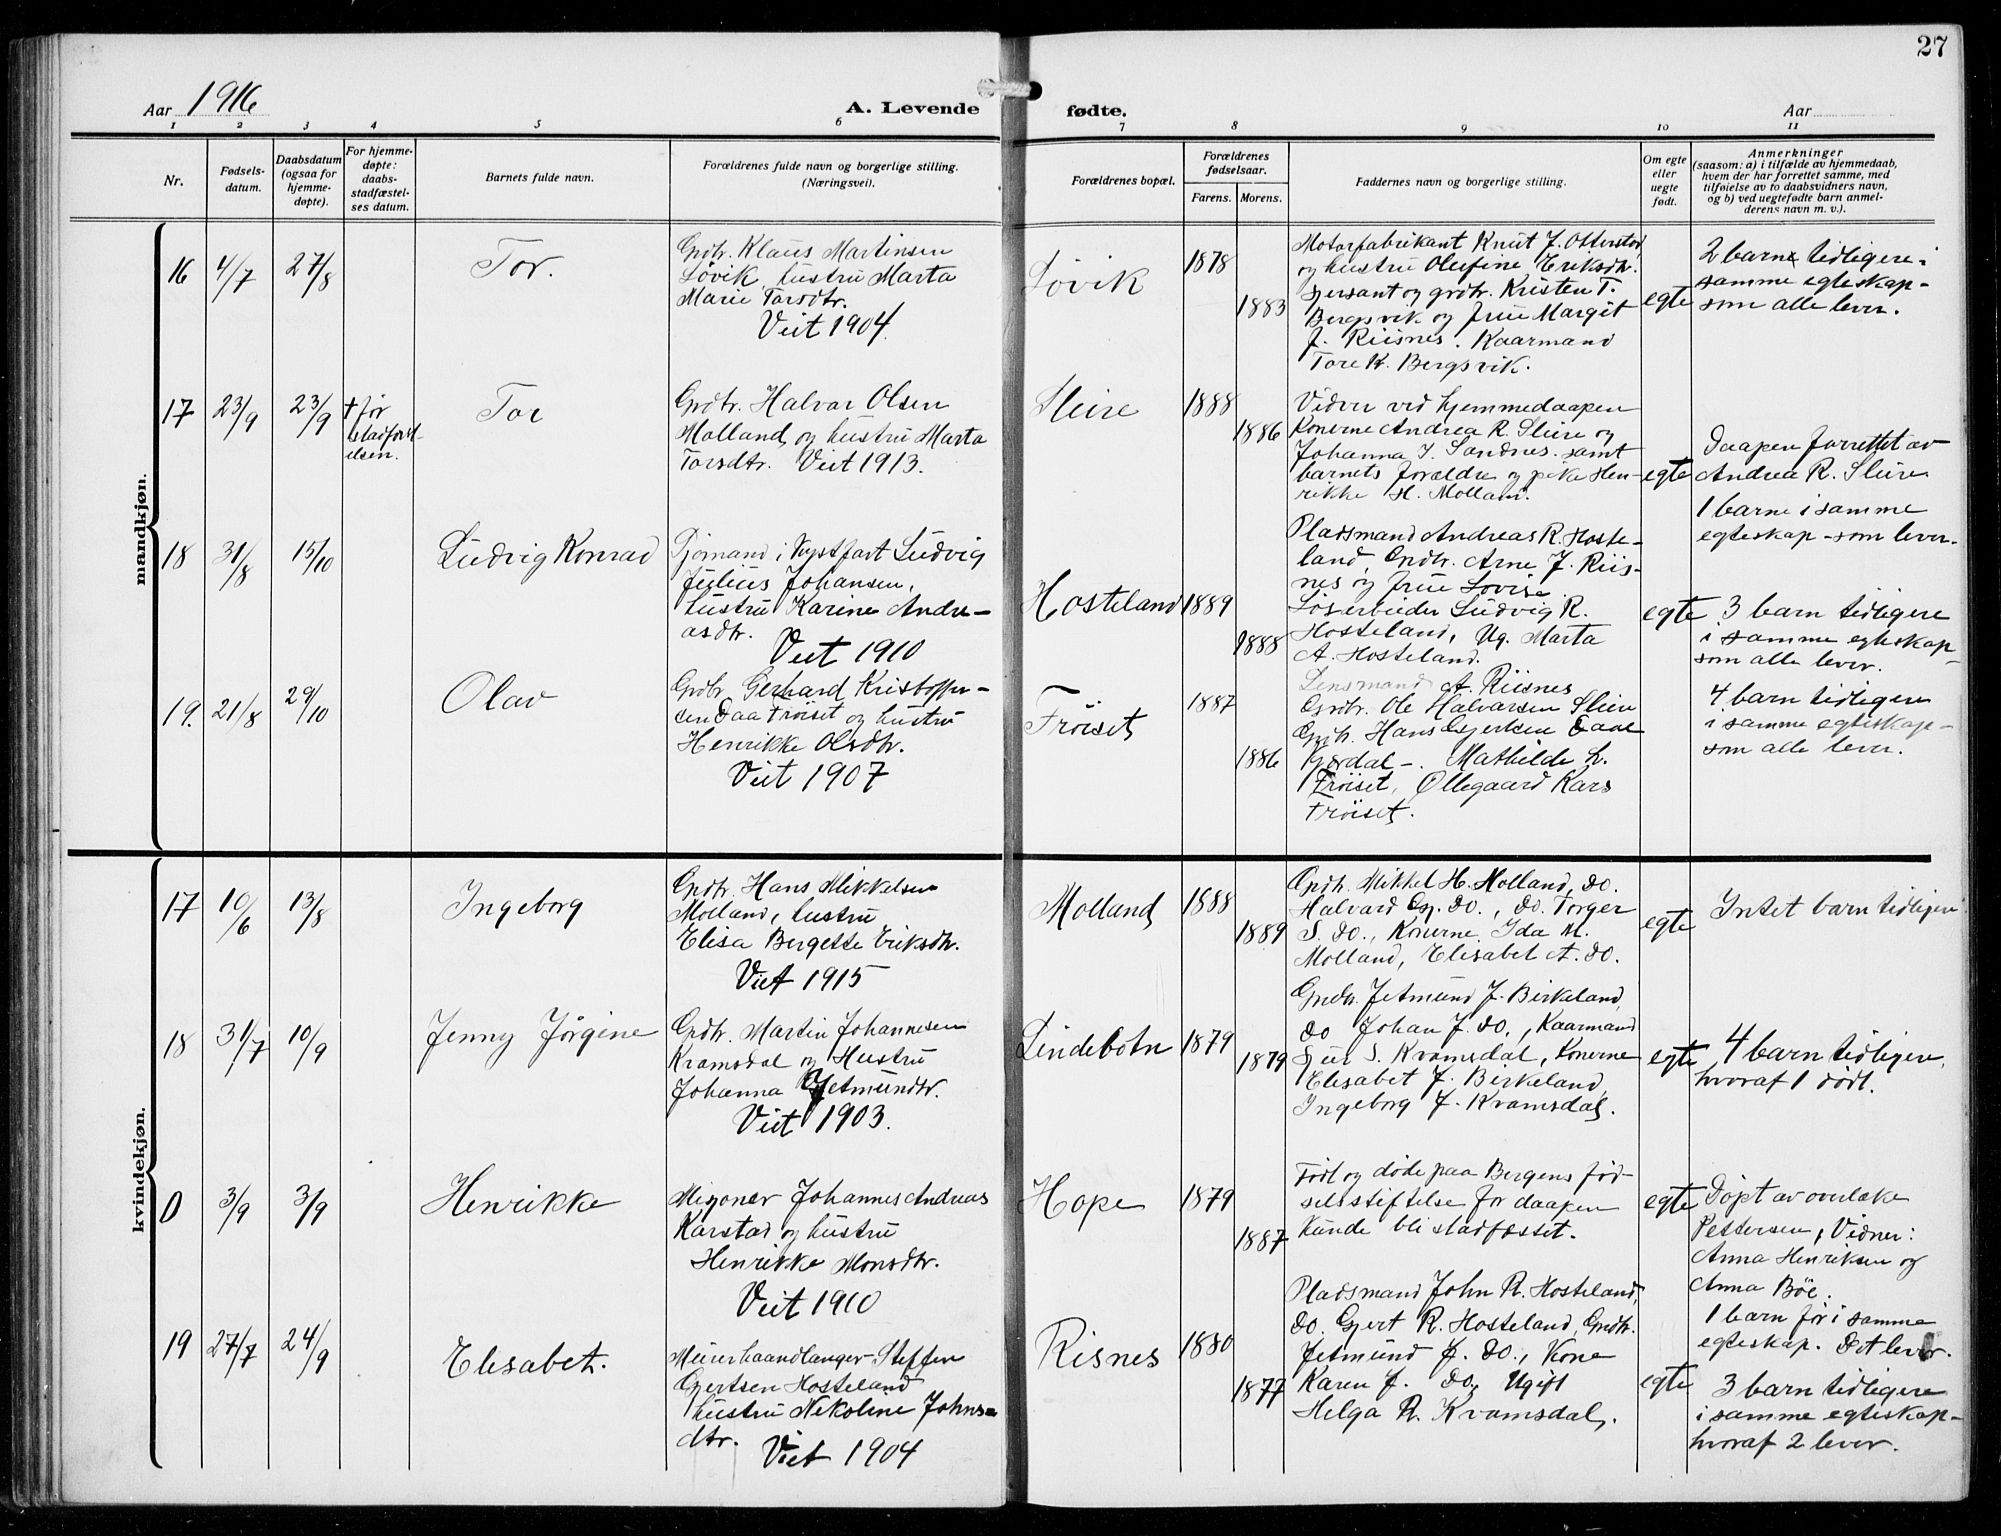 27
Aar 1916
A. Levende fødte.
Aar
1 2 3 4 5 6 7 8 9 10 11
Nr.
Fødsels-
datum.
Daabsdatum
(ogsaa for
hjemme-
døpte).
For hjemme-
døpte:
daabs-
stadfæstel-
ses datum.
Barnets fulde navn.
Forældrenes fulde navn og borgerlige stilling.
(Næringsvei).
Forældrenes bopæl.
Forældrenes
fødselsaar.
Farens. Morens.
Faddernes navn og borgerlige stilling.
Om egte
eller
uegte
født.
Anmerkninger
(saasom: a) i tilfælde av hjemmedaab,
hvem der har forrettet samme, med
tilføielse av to daabsvidners navn,
og b) ved uegtefødte barn anmel-
derens navn m. v.).
mandkjøn.
16 4/7 27/8
Tor.
Grdbr. Klaus Martinsen
Løvik, hustru Marta
Marie Torsdtr.
Viet 1904.
Løvik
1878
1883
Motorfabrikant Knut J. Otterstad
og hustru Olufine Eriksdtr.
Sersant og grdbr. Kristen T.
Bergsvik og frue Margit
J. Riisnes. Kaarmand
Tore K. Bergsvik.
egte
2 barn tidligere i
samme egteskap -
som alle lever.
17 23/9 23/9
† før
stadfæst-
elsen.
Tor
Grdbr. Halvar Olsen
Molland og hustru Marta
Torsdtr. Viet 1913.
Sleire
1888
1886
Vidner ved hjemmedaapen
Konerne Andrea R. Sleire og
Johanna I. Sandnes. samt
barnets forældre og pike Hen-
rikke H. Molland.
egte
Daapen forrettet av
Andrea R. Sleire
1 barn i samme
egteskap - som lever.
18 31/8 15/10
Ludvig Konrad
Sjømand i Kystfart Ludvig
Julius Johansen,
hustru Karine Andre-
asdtr.
Viet 1910
Hosteland
1889
1888
Pladsmand Andreas R. Hoste-
land, Grdbr. Arne J. Riis-
nes og frue Lovise.
Løsarbeider Ludvig R.
Hosteland, Ug. Marta
A. Hosteland.
egte
3 barn tidligere
i samme egteskap -
som alle lever.
19. 21/8 29/10
Olav
Grdbr Gerhard Kristoffer-
sen Daa Frøiset og hustru
Henrikke Olsdtr.
Viet 1907
Frøiset
1887
1886
Lensmand A. Riisnes
Grdbr. Ole Halvarsen Sleire
Grdbr. Hans Gjertsen
Mathilde L.
Frøiset, Øllegaard Kars
Frøiset.
4 barn tidligere
i samme egteskap -
som alle lever.
kvindekjøn.
17 10/6 13/8
Ingeborg
Grdbr. Hans Mikkelsen
Molland, hustru
Elisa Bergette Eriksdtr.
Viet 1915
Molland
1888
1889
Grdbr. Mikkel H. Molland, do.
Halvard Gj. do., do. Torger
S. do., Konerne Ida M.
Molland, Elisabet A. do.
egte
Intet barn tidligere
18 31/7 10/9
Jenny Jørgine
Grdbr. Martin Johannesen
Kramsdal og Hustru
Johanna Jetmundtr.
Viet 1903.
Lindebotn
1879
1879
Grdbr. Jetmund J. Birkeland,
do Johan J. do., Kaarmand
Sjur S. Kvamsdal, Konerne
Elisabet J. Birkeland,
Ingeborg J. Kvamsdal.
egte
4 barn tidligere,
hvoraf 1 dødt.
0 3/9 3/9
Henrikke
Misjonær Johannes Andreas
Karstad og hustru
Henrikke Monsdtr.
Viet 1910
Hope
1879
1887
Født og døde paa Bergens fød-
selsstiftelse før daapen
kunde bli stadfæstet.
egte
Døpt av overlæke
Pettersen, Vidner:
Anna Henriksen og
Anna Bøe.
1 barn før i samme
egteskap. Det lever.
19 27/7 24/9
Elisabet.
Murerhaandlanger Steffen
Gjertsen Hosteland
hustru Nikoline Johns-
dtr.
Viet 1904
Risnes
1880
1877
Pladsmand John R. Hosteland,
do. Gjert R. Hosteland, Grdbr.
Jetmund J. do., Kone
Karen J. do, Ugift
Helga R. Kvamsdal.
egte
3 barn tidligere
i samme egteskap -
hvoraf 2 lever.